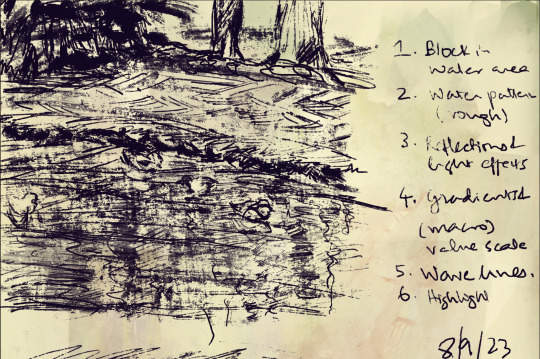 1. Block in
water area
2. Water pattern
(rough)
3. Reflection &
light effects
4. Gradient
(macro)
value scale
5. Wave lines.
6. Highlight
8/9/23